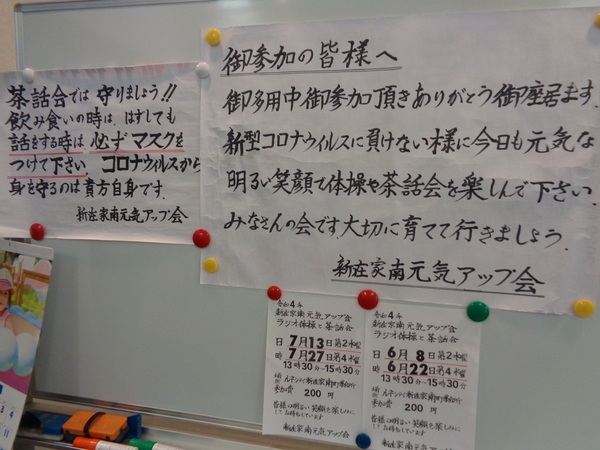 茶話会では守りましょう!!
飲み食いの時は、はずしても
話をする時は必ずマスクを
つけて下さい。コロナウィルスから
身を守るのは貴方自身です。
新在家南元気アップ会
御参加の皆様へ
御多用中御参加頂きありがとう御座居ます。
新型コロナウィルスに負けない様に今日も元気な
明るい笑顔で体操や茶話会を楽しんで下さい。
みなさんの会です大切に育てて行きましょう。
新在家南元気アップ会
令和4年
新在家南元気アップ会
ラジオ体操と茶話会
日時
7月13日第2水曜
7月27日第4水曜
13時30分~15時30分
場所
参加費 200円
皆様の明るい笑顔を楽しみに
お待ちしています
新在家南元気アップ会
令和4年
新在家南元気アップ会
ラジオ体操と茶話会
日時
6月8日第2水曜
6月22日第4水曜
13時30分~15時30分
場所
参加費 200円
皆様の明るい笑顔を楽しみに
お待ちしています
新在家南元気アップ会